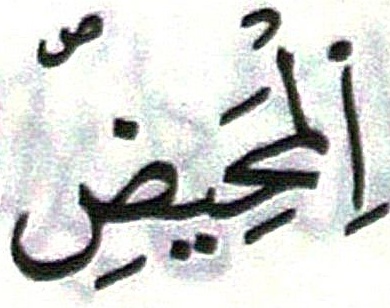 اِ۬لْمَحِيضِۖ